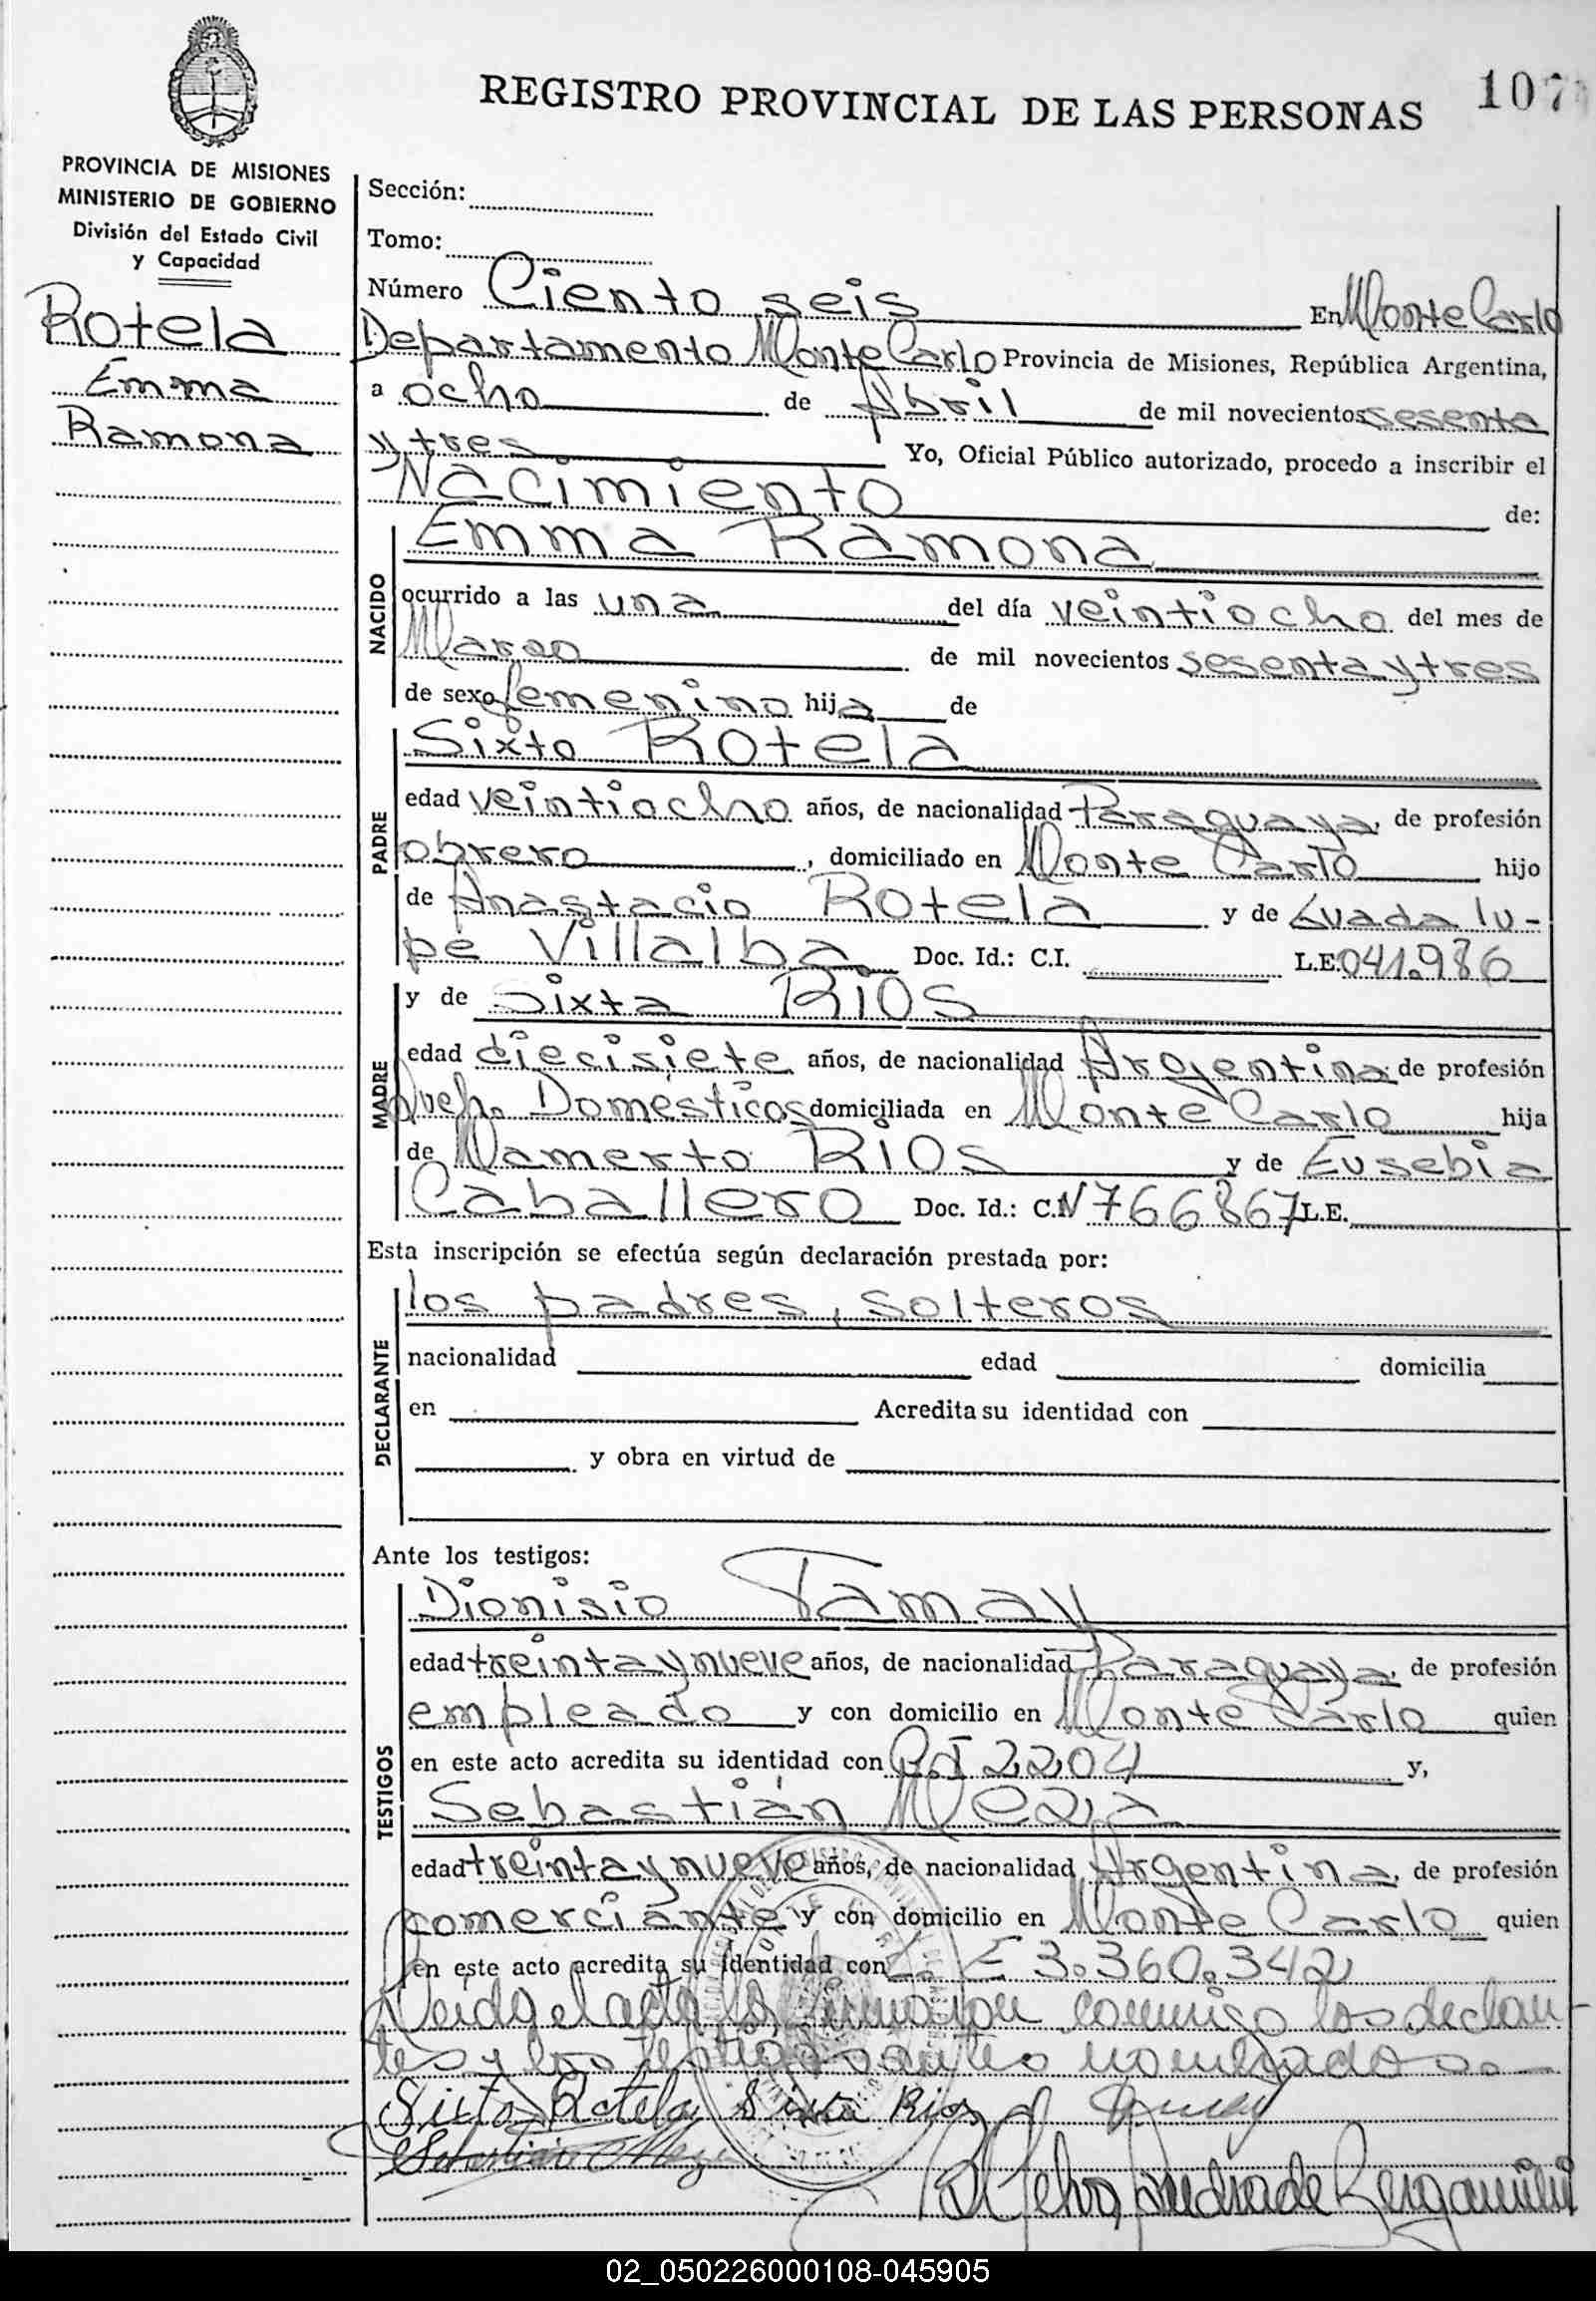 REGISTRO PROVINCIAL DE LAS PERSONAS 107
PROVINCIA DE MISIONES
MINISTERIO DE GOBIERNO
División del Estado Civil
y Capacidad
Rotela
Emma
Ramona
Sección:
Tomo:
Número Ciento seis En Monte Carlo
Departamento Monte Carlo Provincia de Misiones, República Argentina,
a ocho de Abril de mil novecientos sesenta
y tres Yo, Oficial Público autorizado, procedo a inscribir el
Nacimiento de:
NACIDO
Emma Ramona
ocurrido a las una del día veintiocho del mes de
Marzo de mil novecientos sesenta y tres
de sexo femenino hija de
PADRE
Sixto Rotela
edad veintiocho años, de nacionalidad Paraguaya, de profesión
obrero, domiciliado en Monte Carlo hijo
de Anastacio Rotela y de Guadalu-
pe Villalba Doc. Id.: C.I. L.E. 041.986
MADRE
y de Sixta Rios
edad diecisiete años, de nacionalidad Argentina de profesión
Queh. Domésticos domiciliada en Monte Carlo hija
de Mamerto Rios y de Eusebia
Caballero Doc. Id.: C.N 766867 L.E.
Esta inscripción se efectúa según declaración prestada por:
DECLARANTE
los padres, solteros
nacionalidad edad domicilia
en Acredita su identidad con
y obra en virtud de
Ante los testigos:
TESTIGOS
Dionisio Tamay
edad treinta y nueve años, de nacionalidad Paraguaya, de profesión
empleado y con domicilio en Monte Carlo quien
en este acto acredita su identidad con C.I 2204 y,
Sebastián Meza
edad treinta y nueve años, de nacionalidad Argentina, de profesión
comerciante y con domicilio en Monte Carlo quien
en este acto acredita su identidad con L. E 3.360.342
Leida el acta la firman conmigo los declaran-
tes y los testigos antes nombrados.
Sixto Rotela Sixta Rios
Sebastian Meza
02_050226000108-045905